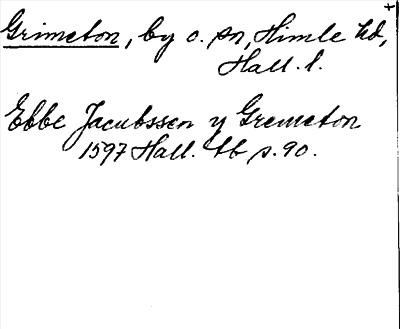 Grimeton, by o. sn, Himle hd,
Hall. l.
Ebbe Jacubssen y Gremeton
1597 Hall. tb s. 90.